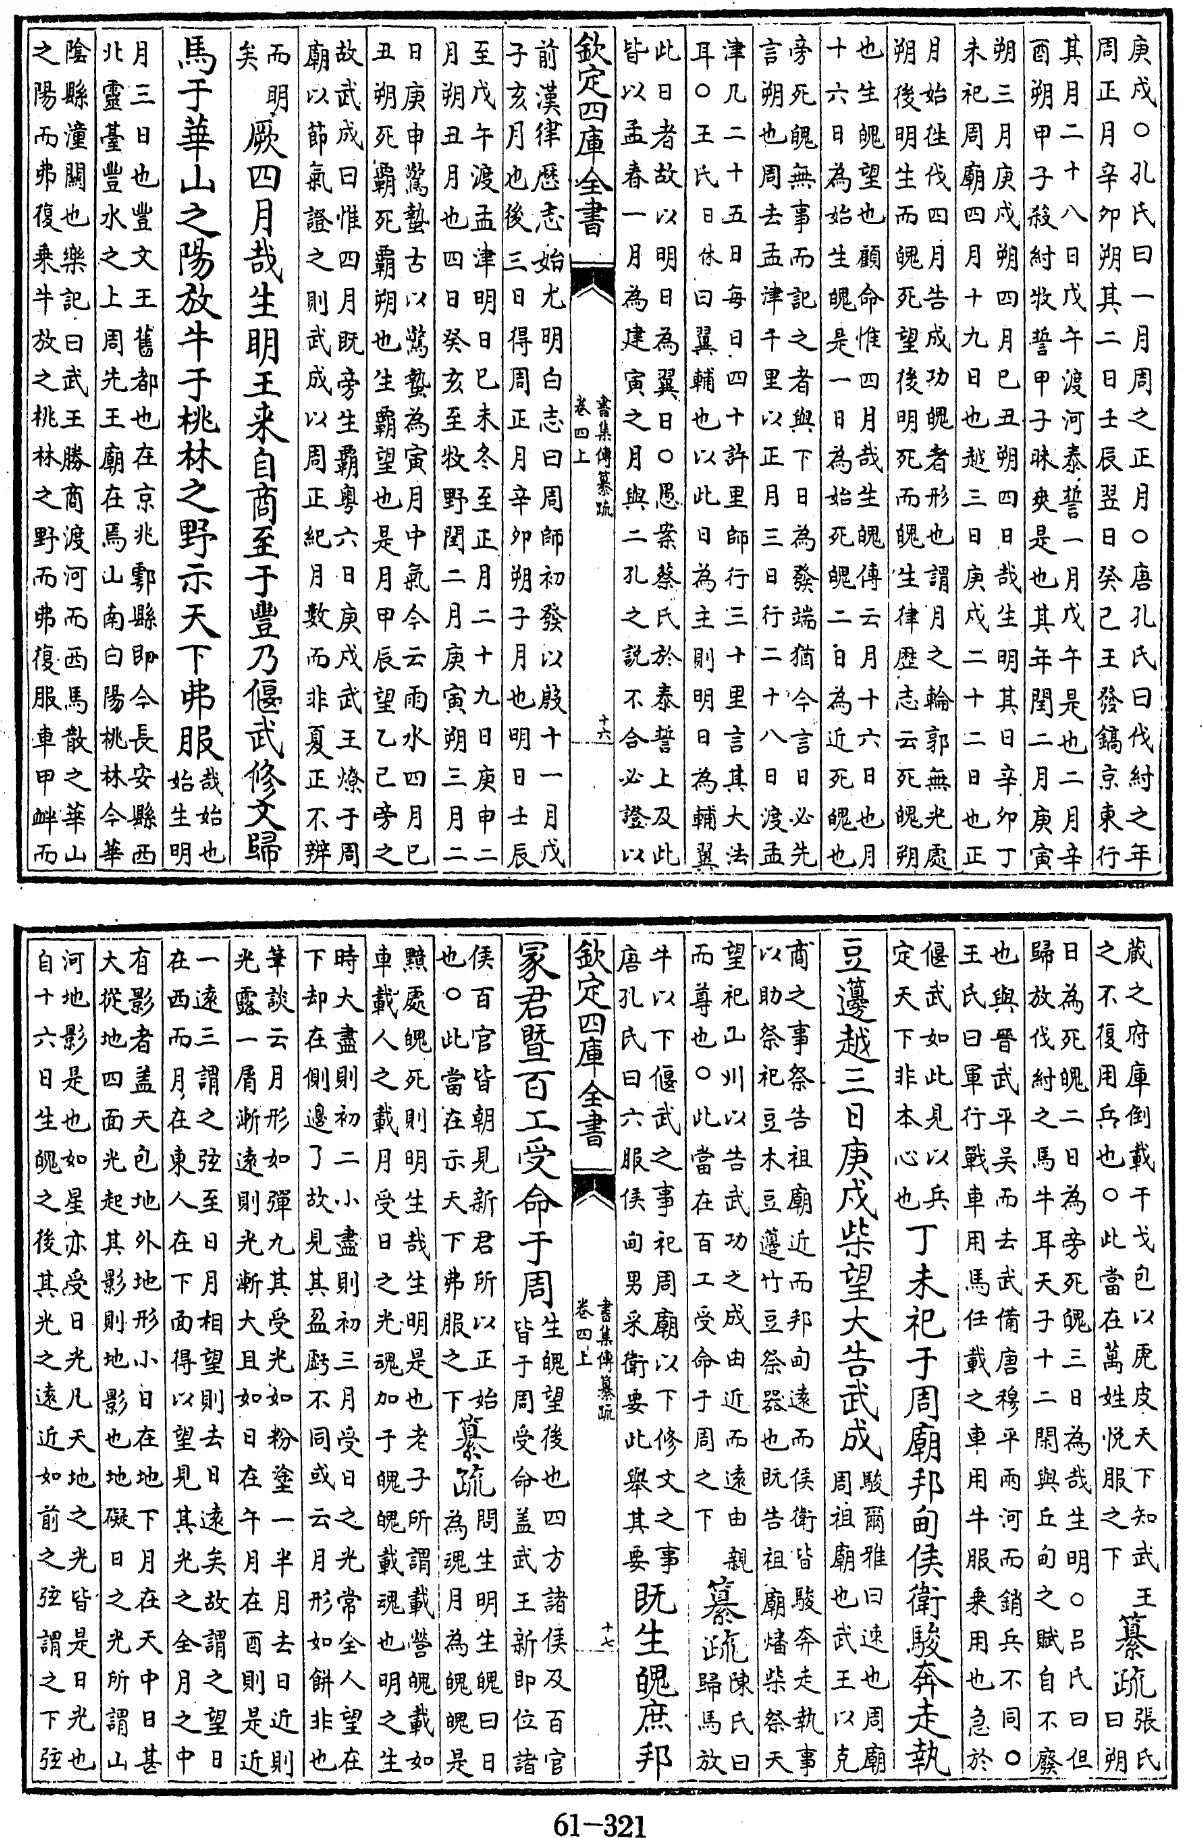 庚戌○孔氏曰一月周之正月○唐孔氏曰伐紂之年
周正月辛卯朔其二日壬辰翌日癸巳王發鎬京東行
其月二十八日戊午渡河泰誓一月戊午是也二月辛
酉朔甲子殺紂牧誓甲子昧爽是也其年閏二月庚寅
朔三月庚戌朔四月己丑朔四日哉生明其日辛卯丁
未祀周廟四月十九日也越三日庚戌二十二日也正
月始徃伐四月告成功魄者形也謂月之輪郭無光處
朔後明生而魄死望後明死而魄生律歴志云死魄朔
也生魄望也顧命惟四月哉生魄傳云月十六日也月
十六日為始生魄是一日為始死魄二日為近死魄也
旁死魄無事而記之者與下日為發端猶今言日必先
言朔也周去孟津千里以正月三日行二十八日渡孟
津凡二十五日每日四十許里師行三十里言其大法
耳○王氏日休曰翼輔也以此日為主則明日為輔翼
此日者故以明日為翼日○愚案蔡氏於泰誓上及此
皆以孟春一月為建寅之月與二孔之說不合必證以
欽定四庫全書
書集傳纂疏
卷四上
十六
前漢律歴志始尤明白志曰周師初發以殷十一月戊
子亥月也後三日得周正月辛卯朔子月也明日壬辰
至戊午渡孟津明日己未冬至正月二十九日庚申二
月朔丑月也四日癸亥至牧野閏二月庚寅朔三月二
日庚申驚蟄古以驚蟄為寅月中氣今云雨水四月己
丑朔死霸死霸朔也生霸望也是月甲辰望乙巳旁之
故武成曰惟四月既旁生霸粤六日庚戌武王燎于周
廟以節氣證之則武成以周正紀月數而非夏正不辨
而明
矣
厥四月哉生明王来自商至于豐乃偃武修文歸
馬于華山之陽放牛于桃林之野示天下弗服
哉始也
始生明
月三日也豐文王舊都也在京兆鄠縣即今長安縣西
北靈臺豐水之上周先王廟在焉山南曰陽桃林今華
陰縣潼關也樂記曰武王勝商渡河而西馬散之華山
之陽而弗復乗牛放之桃林之野而弗復服車甲衅而
蔵之府庫倒載干戈包以虎皮天下知武王
之不復用兵也○此當在萬姓悅服之下
纂疏
張氏
曰朔
日為死魄二日為旁死魄三日為哉生明○呂氏曰但
歸放伐紂之馬牛耳天子十二閑與丘甸之賦自不廢
也與晉武平吳而去武備唐穆平兩河而銷兵不同○
王氏曰軍行戰車用馬任載之車用牛服乗用也急於
偃武如此見以兵
定天下非本心也
丁未祀于周廟邦甸侯衛駿奔走執
豆籩越三日庚戌柴望大告武成
駿爾雅曰速也周廟
周祖廟也武王以克
商之事祭告祖廟近而邦甸遠而侯衛皆駿奔走執事
以助祭祀豆木豆籩竹豆祭器也既告祖廟燔柴祭天
望祀山川以告武功之成由近而遠由親
而尊也○此當在百工受命于周之下
纂疏
陳氏曰
歸馬放
牛以下偃武之事祀周廟以下修文之事
唐孔氏曰六服侯甸男采衛要此舉其要
既生魄庶邦
欽定四庫全書
書集傳纂疏
卷四上
十七
冢君暨百工受命于周
生魄望後也四方諸侯及百官
皆于周受命盖武王新即位諸
侯百官皆朝見新君所以正始
也○此當在示天下弗服之下
纂疏
問生明生魄曰日
為魂月為魄魄是
黯處魄死則明生哉生明是也老子所謂載營魄載如
車載人之載月受日之光魂加于魄魄載魂也明之生
時大盡則初二小盡則初三月受日之光常全人望在
下却在側邉了故見其盈虧不同或云月形如餅非也
筆談云月形如彈丸其受光如粉塗一半月去日近則
光露一屑漸遠則光漸大且如日在午月在酉則是近
一遠三謂之弦至日月相望則去日遠矣故謂之望日
在西而月在東人在下面得以望見其光之全月之中
有影者盖天包地外地形小日在地下月在天中日甚
大從地四面光起其影則地影也地礙日之光所謂山
河地影是也如星亦受日光凡天地之光皆是日光也
自十六日生魄之後其光之遠近如前之弦謂之下弦
61-321